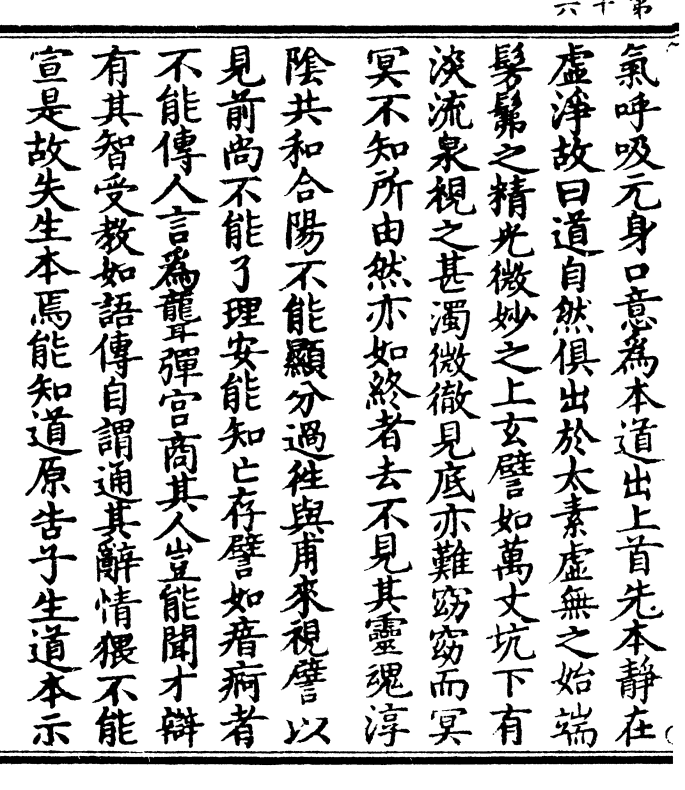 第十六
氣呼吸元身口意為本道出上首先本靜在
虛淨故曰道自然俱出於太素虛無之始端
髣髴之精光微妙之上玄譬如萬丈坑下有
淡流泉視之甚濁微徹見底亦難窈窈而冥
冥不知所由然亦如終者去不見其靈魂淳
陰共和合陽不能顯分過往與甫來視譬以
見前尚不能了理安能知亡存譬如瘖瘂者
不能傳人言為聾彈宮商其人豈能聞才辯
有其智受教如語傳自謂通其辭情猥不能
宣是故失生本焉能知道原告子生道本示